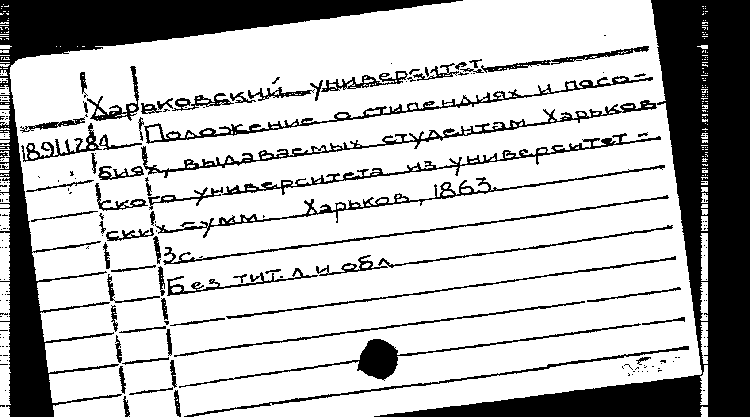 Харьковский университет.
18.911.281. Положение о стипендиях и посо-
биях, выдаваемых студентам Харьков-
ского университета из университет-
ских сумм. Харьков, 1863.
3с.
Без тит. л и обл